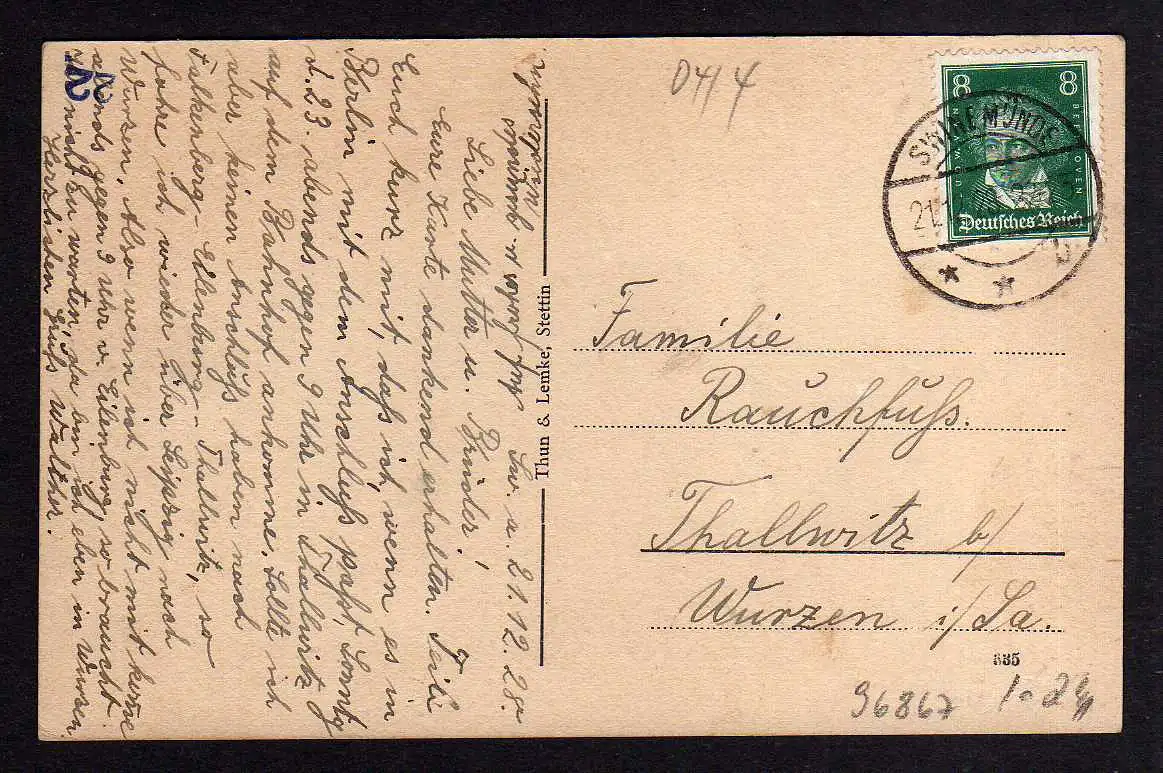 Sw. d. 21.12.28.
Liebe Mutter u. Brüder!
Eure Karte dankend erhalten. Teile
Euch kurz mit, daß ich, wenn es in
Berlin mit dem Anschluß paßt, Sonntg
d. 23. abends gegen 9 Uhr in Thallwitz
auf dem Bahnhof ankomme. Sollte ich
aber keinen Anschluß haben nach
Falkenberg - Eilenburg - Thallwitz, so
fahre ich wieder über Leipzig nach
Wurzen. Also wenn ich nicht mit komme
abends gegen 9 Uhr v. Eilenburg, so braucht
nicht zu warten, da bin ich eben in Wurzen.
Herzlichen Gruß Walther.
Thun & Lemke, Stettin
04/4
8 8
BEETHOVEN
Deutsches Reich
SWINEMÜNDE
21.1
b
* *
Familie
Rauchfuß.
Thallwitz b/
Wurzen i/Sa.
535
96867